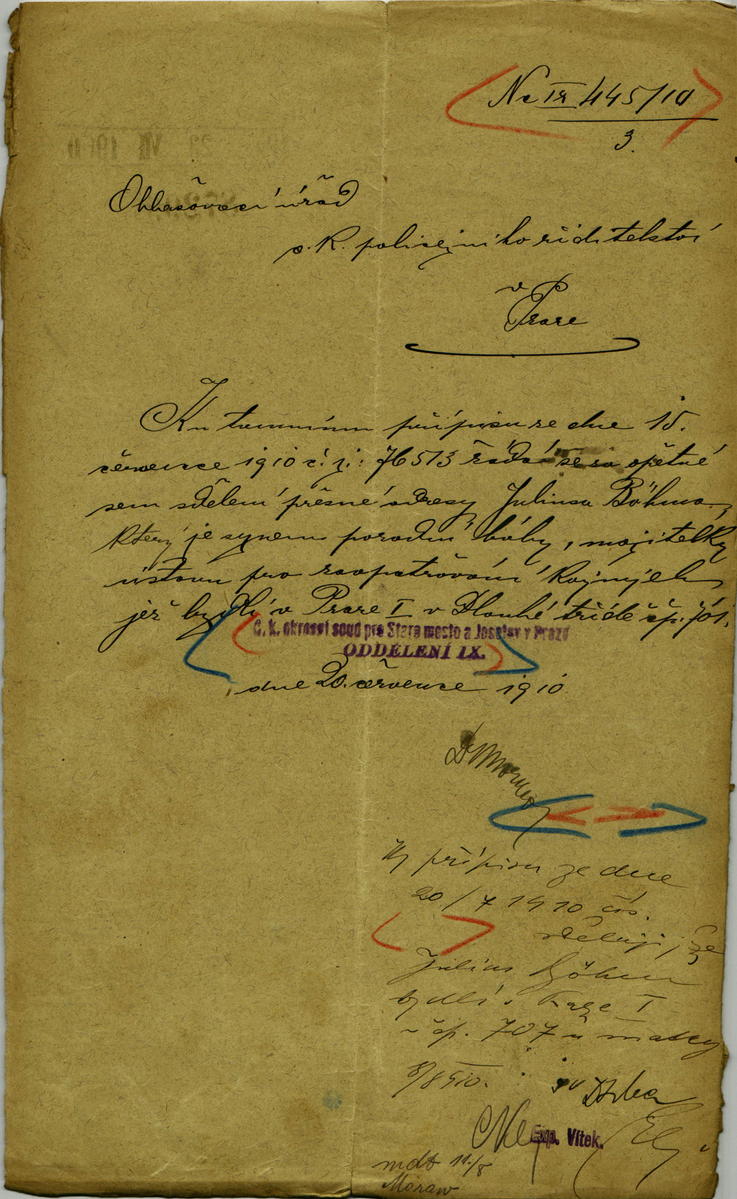 Nc IX 445/10
3.
Ohlašovací úřad
c. k. policejního ředitelství
v
Praze
Ku tamnímu přípisu ze dne 15.
července 1910 č. j.: 76513 žádá se za opětné
sem sdělení přesné adresy Juliusa Böhma,
který je synem porodní báby, majitelky
ústavu pro zaopatřování kojných,
jež bydlí v Praze I v Dlouhé třídě čp.
C. k. okresní soud pro Staré město a Josefov v Praze
ODDĚLENÍ IX.
dne 20. července 1910
K přípisu ze dne
20/7 1910 čís.
sděluji, že
Julius Böhm
bydlí v Praze I
čp. 707 u matky
8/8 910.
Exp. Vítek.
mdt 11/8